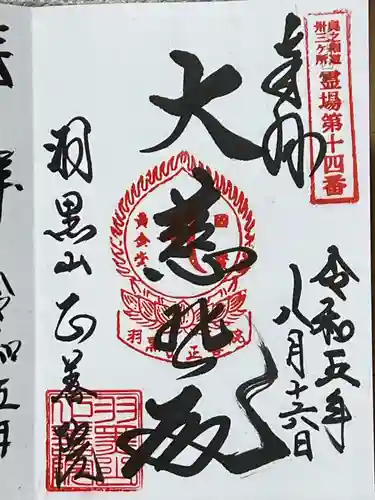 奥之細道
卅三ヶ所
霊場第十四番
奉拝
令和五年
八月十六日
大慈悲殿
黄金堂
羽黒山正善院